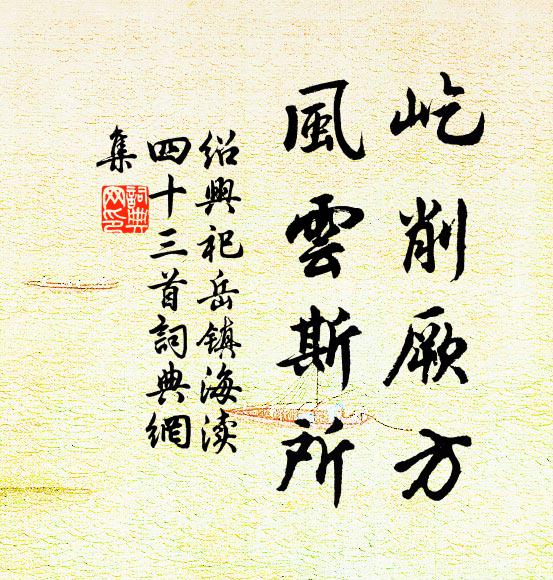 屹削厥方
風雲斯所
绍興祀岳镇海渎
四十三首詞典網
集
詞典
网印